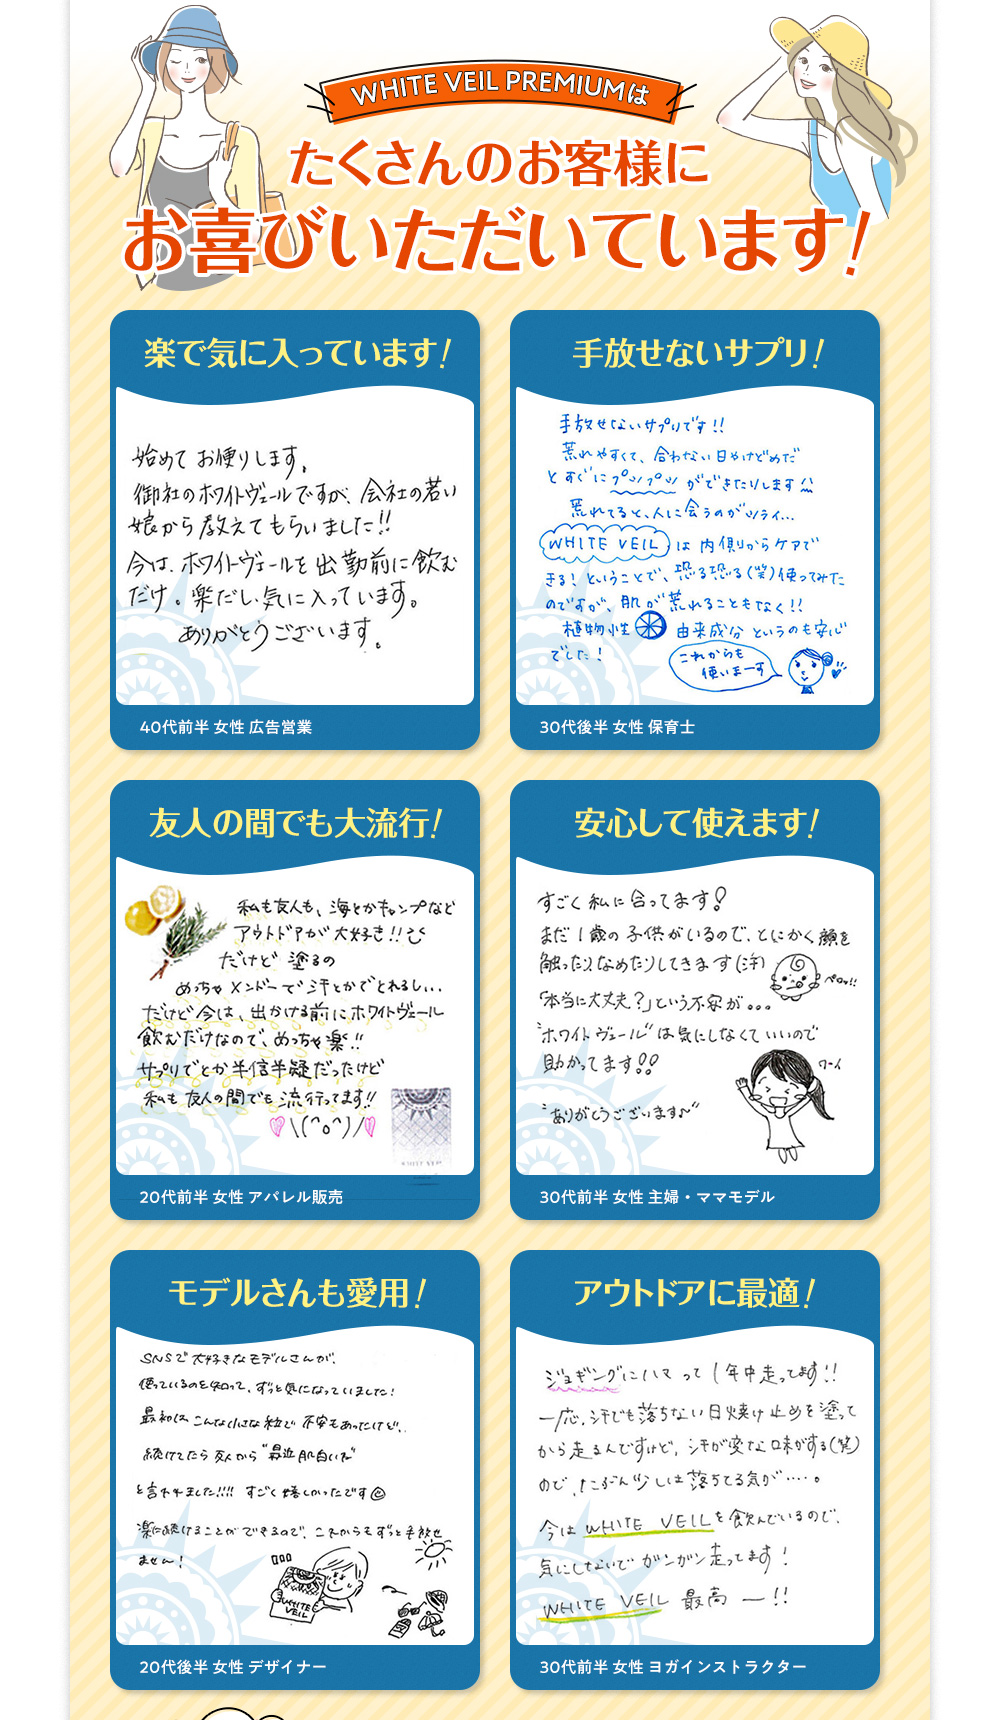 WHITE VEIL PREMIUMは
たくさんのお客様に
お喜びいただいています!
楽で気に入っています!
始めて お便りします。
御社のホワイトヴェールですが、会社の若い
娘から教えてもらいました!!
今は、ホワイトヴェールを出勤前に飲む
だけ。楽だし気に入っています。
ありがとうございます。
40代前半 女性 広告営業
手放せないサプリ!
手放せないサプリです!!
荒れやすくて、合わない日やけどめだ
とすぐにプツプツができたりします
荒れてると、人に会うのがツライ…
WHITE VEIL は内側からケアで
きる!ということで、恐る恐る(笑)使ってみた
のですが、肌が荒れることもなく!!
植物性 由来成分というのも安心
でした!
これからも
使いまーす
30代後半 女性 保育士
友人の間でも大流行!
私も友人も、海とかキャンプなど
アウトドアが大好き!!
だけど 塗るの
めっちゃメンドーで汗とかでとれるしい…
だけど今は、出かける前にホワイトヴェール
飲むだけなので、めっちゃ楽!!
サプリでとか半信半疑だったけど
私も友人の間でも流行ってます!!
\(^o^)/
WHITE VEIL
20代前半 女性 アパレル販売
安心して使えます!
すごく私に合ってます!
まだ1歳の子供がいるので、とにかく顔を
触ったりなめたりしてきます(汗)
ペロッ!!
「本当に大丈夫?」という不安が。。。
"ホワイトヴェール"は気にしなくていいので
助かってます!!
ワーイ
"ありがとうございます♪"
30代前半 女性 主婦・ママモデル
モデルさんも愛用!
SNSで大好きなモデルさんが、
使っているのを知って、ずっと気になっていました!
最初は、こんな小さな粒で不安もあったけど、
続けてたら友人から"最近肌白いね"
と言われました!!!! すごく嬉しかったです
楽に続けることができるので、これからもずっと手放せ
ません!
WHITE
VEIL
20代後半 女性 デザイナー
アウトドアに最適!
ジョギングにハマって1年中走ってます!!
一応、汗でも落ちない日焼け止めを塗って
から走るんですけど、汗が変な味がする(笑)
ので、たぶん少しは落ちてる気が…。
今はWHITE VEILを飲んでいるので、
気にしないでガンガン走ってます!
WHITE VEIL 最高ー!!
30代前半 女性 ヨガインストラクター